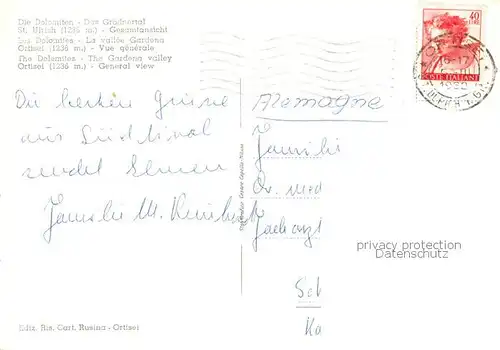 Die Dolomiten - Das Grödnertal
St. Ulrich (1236 m.) - Gesamtansicht
Les Dolomites - La vallée Gardena
Ortisei (1236 m.) - Vue générale
The Dolomites - The Gardena valley
Ortisei (1236 m.) - General view
40
POSTE ITALIANE
Die besten Grüsse
aus Südtirol
sendet Ihnen
Familie M.
Alemagne
Familie
Dr. med
Facharzt
Sch
Ka
privacy protection
Datenschutz
Ediz. Ris. Cart. Rusina - Ortisei